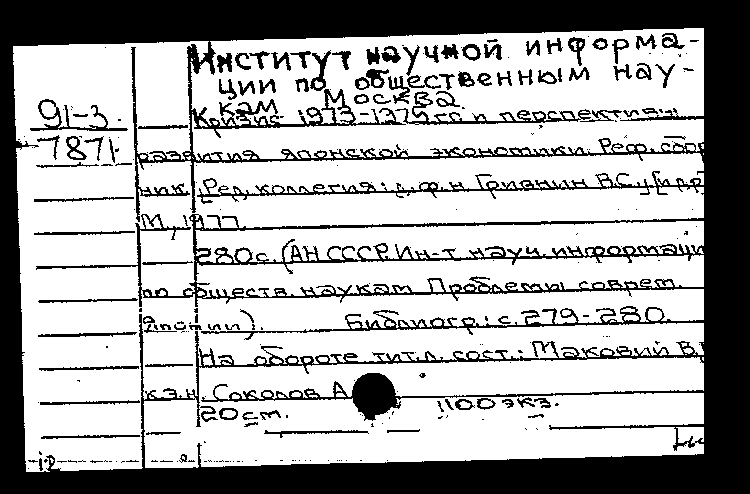 Институт научной информа-
ции по общественным нау-
кам Москва
91-3
7871
Кризис 1973-1975 гг и перспективы
развития японской экономики. Реф. сбор
ник. Ред. коллегия: д.ф.н. Гривнин В.С., [и др]
М., 1977
280с. (АН СССР. Ин-т науч. информаци
по обществ. наукам Проблемы соврем.
Японии). Библиогр.: с. 279-280.
На обороте тит.л. сост.: Маковий В.
к.э.н. Соколов А
20 см. 1100 экз.